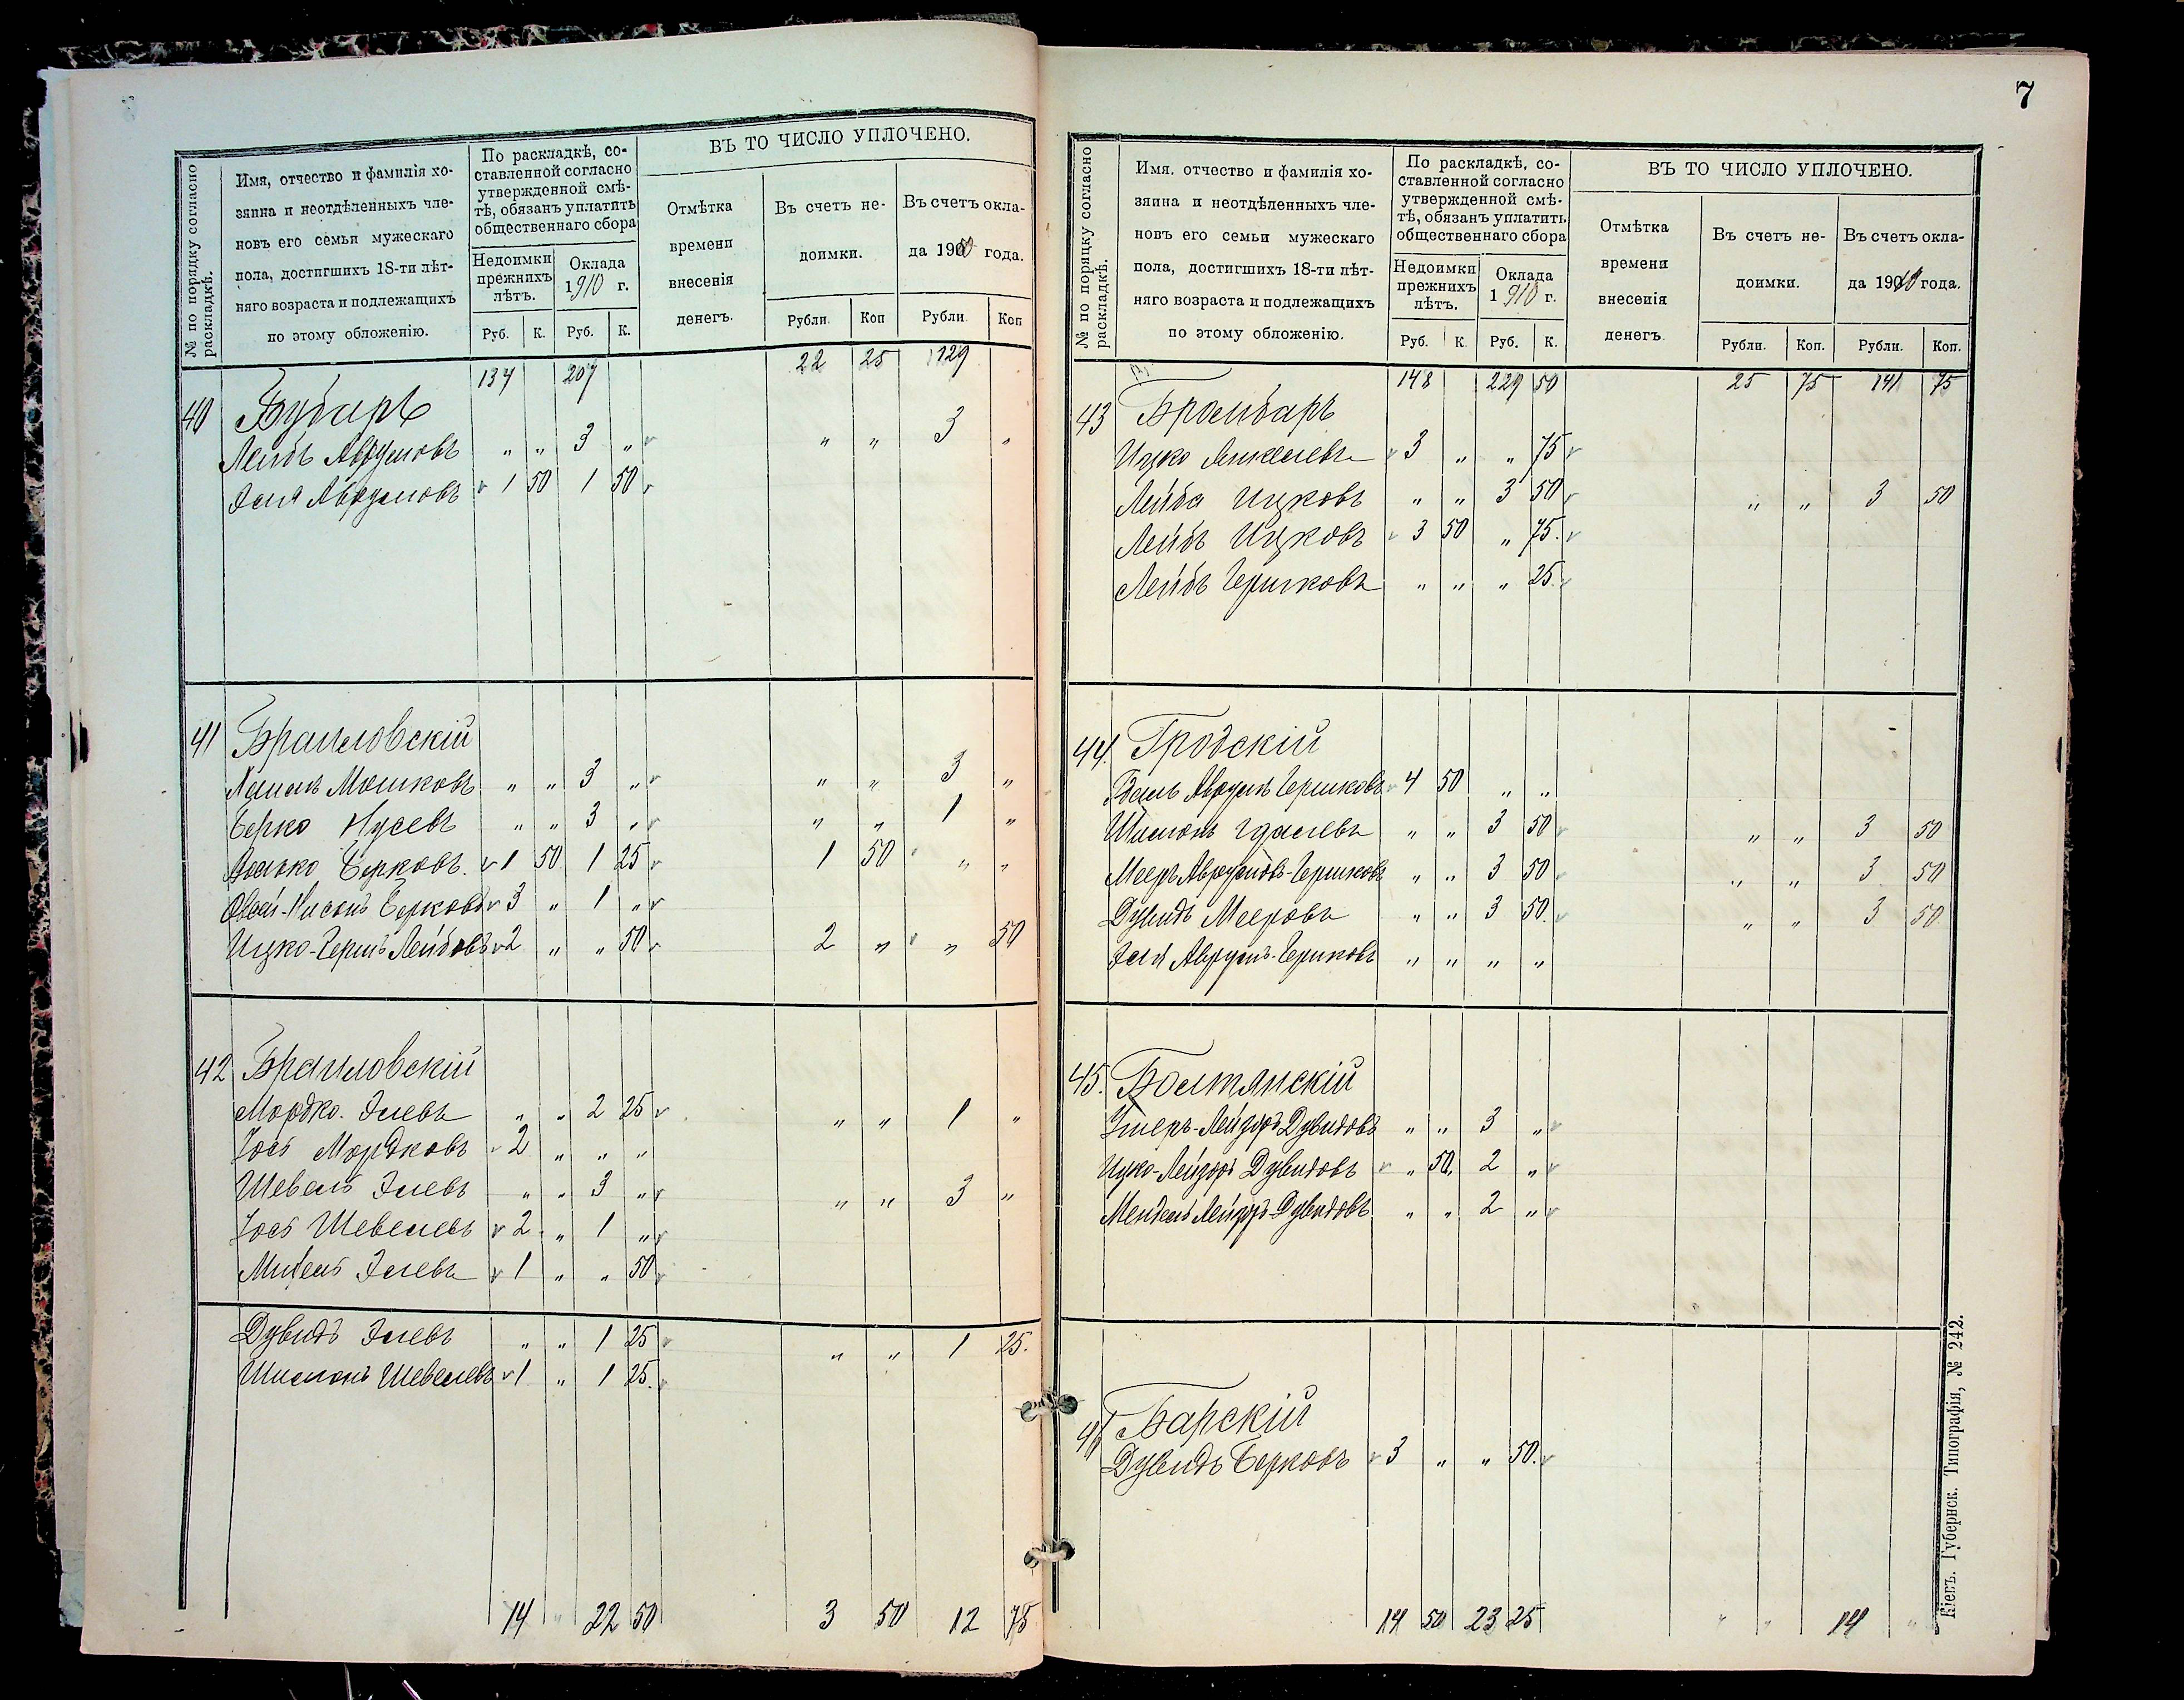 7
№ по порядку согласно раскладкѣ.
Имя, отчество и фамилія хо-
зяина и неотдѣленныхъ чле-
новъ его семьи мужескаго
пола, достигшихъ 18-ти лѣт-
няго возраста и подлежащихъ
по этому обложенію.
По раскладкѣ, со-
ставленной согласно
утвержденной смѣ-
тѣ, обязанъ уплатить
общественнаго сбора
Недоимки
прежнихъ
лѣтъ.
Оклада
1910 г.
Руб. К. Руб. К.
ВЪ ТО ЧИСЛО УПЛОЧЕНО.
Отмѣтка
времени
внесенія
денегъ.
Въ счетъ не-
доимки.
Въ счетъ окла-
да 1910 года.
Рубли. Коп Рубли. Коп
134 207 22 25 129
40 Бударъ
Лейбъ Аврумовъ " " 3 " " " 3 "
Эля Аврумовъ 1 50 1 50
41 Браиловскій
Хаимъ Мошковъ " " 3 " " " 3 "
Берко Нусевъ " " 3 " " " 1 "
Волько Берковъ. 1 50 1 25 1 50 " "
Овсей-Нисонъ Берковъ 3 " 1 "
Ицко-Гершъ Лейбовъ 2 " " 50 2 " " 50
42 Браиловскій
Мордко Элевъ " " 2 25 " " 1 "
Іосъ Мордковъ 2 " " "
Шевель Элевъ " " 3 " " " 3 "
Іосъ Шевелевъ 2 " 1 "
Михель Элевъ 1 " " 50
Дувидъ Элевъ " " 1 25 " " 1 25.
Шимонъ Шевелевъ 1 " 1 25.
14 " 22 50 3 50 12 75
№ по порядку согласно раскладкѣ.
Имя, отчество и фамилія хо-
зяина и неотдѣленныхъ чле-
новъ его семьи мужескаго
пола, достигшихъ 18-ти лѣт-
няго возраста и подлежащихъ
по этому обложенію.
По раскладкѣ, со-
ставленной согласно
утвержденной смѣ-
тѣ, обязанъ уплатить
общественнаго сбора
Недоимки
прежнихъ
лѣтъ.
Оклада
1910 г.
Руб. К. Руб. К.
ВЪ ТО ЧИСЛО УПЛОЧЕНО.
Отмѣтка
времени
внесенія
денегъ.
Въ счетъ не-
доимки.
Въ счетъ окла-
да 1910 года.
Рубли. Коп. Рубли. Коп.
148 229 50 25 75 141 75
43 Бронбаръ
Ицко Янкелевъ 3 " " 75
Лейба Ицковъ " " 3 50 " " 3 50
Лейбъ Ицковъ 3 50 " 75.
Лейбъ Гершковъ " " " 25.
44. Гродскій
Аврумъ Гершковъ 4 50 " "
Шимонъ Гдалевъ " " 3 50 " " 3 50
Мееръ Аврумовъ-Гершковъ " " 3 50 " " 3 50
Дувидъ Мееровъ " " 3 50. " " 3 50.
Эля Аврумъ-Гершковъ " " " "
45. Болтянскій
Ушеръ-Лейзоръ Дувидовъ " " 3 "
Ицко-Лейзоръ Дувидовъ " 50. 2 "
Мендель Лейзоръ-Дувидовъ " " 2 "
46 Барскій
Дувидъ Берковъ 3 " " 50.
14 50 23 25 " " 14 "
Кіевъ. Губернск. Типографія, № 242.